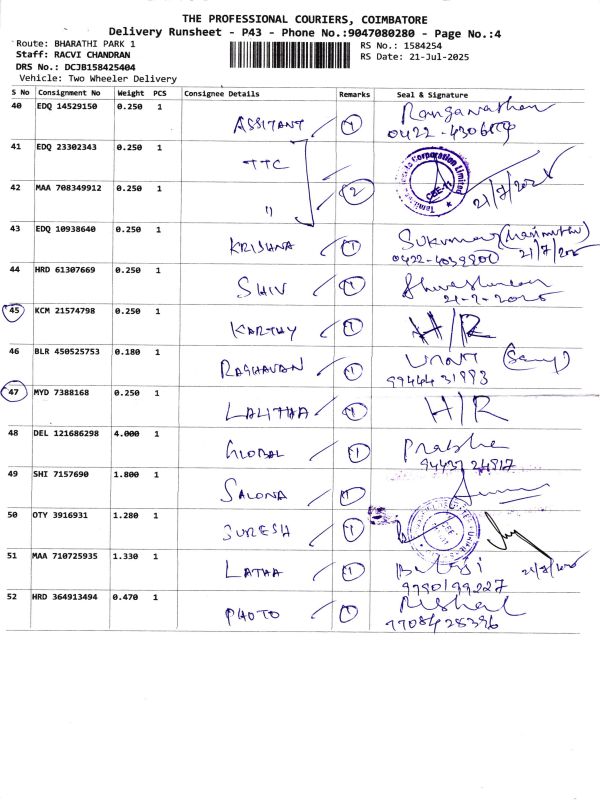 THE PROFESSIONAL COURIERS, COIMBATORE
Delivery Runsheet - P43 - Phone No.:9047080280 - Page No.:4
Route: BHARATHI PARK 1
RS No.: 1584254
Staff: RACVI CHANDRAN
RS Date: 21-Jul-2025
DRS No.: DCJB158425404
Vehicle: Two Wheeler Delivery
S No Consignment No Weight PCS Consignee Details Remarks Seal & Signature
40 EDQ 14529150 0.250 1
ASSITANT 1 Ranganathan
0422-
41 EDQ 23302343 0.250 1
TTC
Corporation Limited
CBE-11
42 MAA 708349912 0.250 1
" 2 21/7/2025
43 EDQ 10938640 0.250 1
KRISHNA 1 Sukumar
21/7/2025
44 HRD 61307669 0.250 1
SHIV 1
45 KCM 21574798 0.250 1
KARTHY 1 H/R
46 BLR 450525753 0.180 1
RAGHAVAN 1
9944431993
47 MYD 7388168 0.250 1
LALITHA 1 H/R
48 DEL 121686298 4.000 1
GLOBAL 1 Prabha
9443724817
49 SHI 7157690 1.800 1
SALONA 1
50 OTY 3916931 1.280 1
SURESH 1
51 MAA 710725935 1.330 1
LATHA 1 Balaji
9790199227
52 HRD 364913494 0.470 1
PHOTO 1 Rishal
7708428396